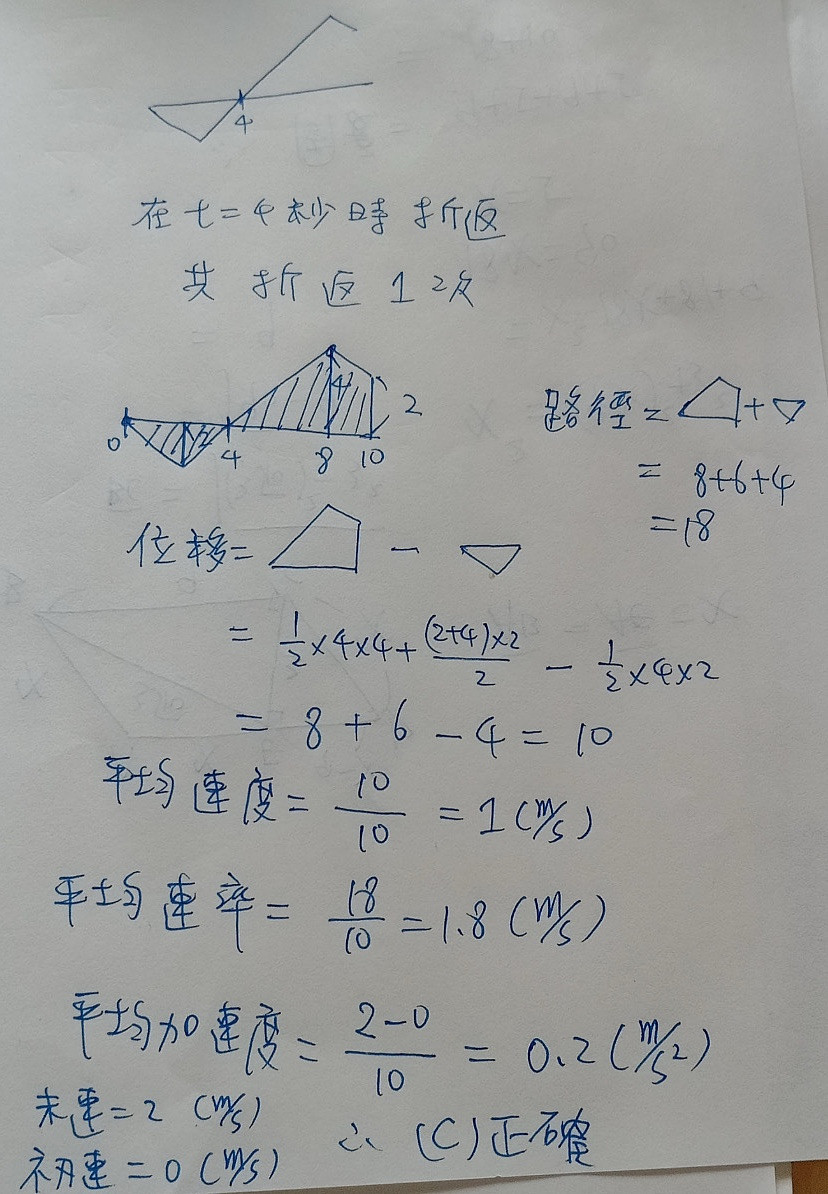 4
在 t = 4 秒時 折返
共 折 返 1 次
0 2 4 4 8 10 2
路徑 = + 
= 8+6+4
= 18
位移 = −
= 1/2 × 4 × 4 + (2+4)×2/2 − 1/2 × 4 × 2
= 8 + 6 − 4 = 10
平均速度 = 10/10 = 1 (m/s)
平均速率 = 18/10 = 1.8 (m/s)
平均加速度 = 2−0/10 = 0.2 (m/s2)
末速 = 2 (m/s)
初速 = 0 (m/s)
∴ (C) 正確